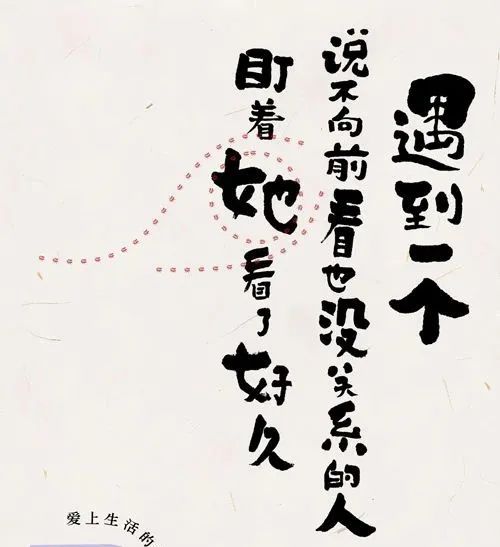 遇到一个
说不向前看也没关系的人
盯着她看了好久
爱上生活的